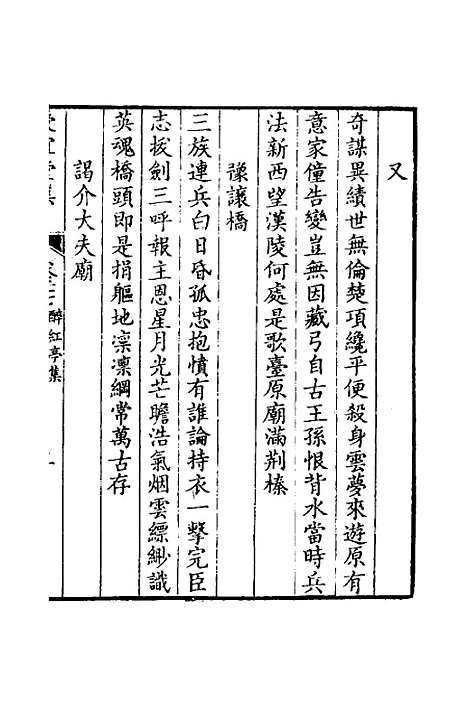 又
奇謀異績世無倫楚項纔平便殺身雲夢來遊原有
意家僮告變豈無因藏弓自古王孫恨背水當時兵
法新西望漢陵何處是歌臺原廟滿荆榛
豫讓橋
三族連兵白日昏孤忠抱憤有誰論持衣一擊完臣
志拔劍三呼報主恩星月光芒瞻浩氣烟雲縹緲識
英魂橋頭即是捐軀地凛凛綱常萬古存
謁介大夫廟
醉紅亭集